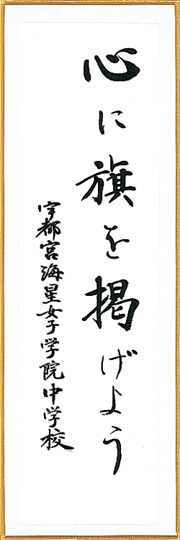 心に旗を掲げよう
宇都宮海星女子学院中学校